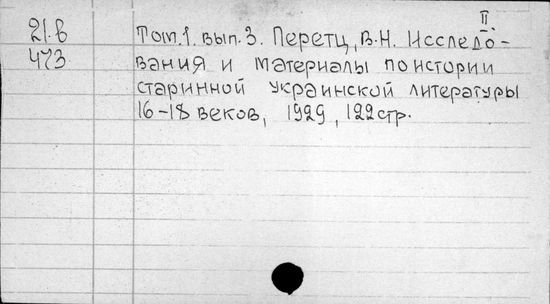 II.
21.б Том.1. вып.3. Перетц, В.Н. Исследо-
473 вания и материалы по истории
старинной украинской литературы
16-18 веков, 1929, 122 стр.